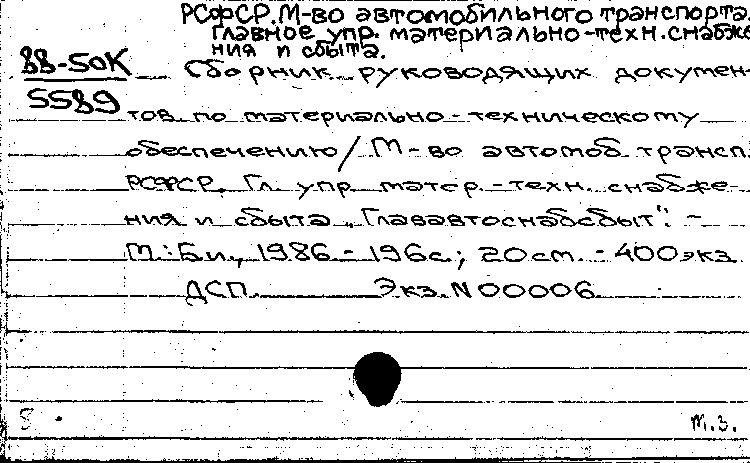 РСФСР. М-во автомобильного транспорта.
Главное упр. материально-техн. снабже
ния и сбыта.
88-50К
5589
Сборник руководящих докумен-
тов по материально-техническому
обеспечению / М-во автомоб. трансп.
РСФСР, Гл. упр. матер.-техн. снабже-
ния и сбыта „Глававтоснабсбыт". -
М.: Б.и., 1986 - 196 с.; 20 см. - 400 экз.
ДСП. Экз. N 00006
8 .
т.з.